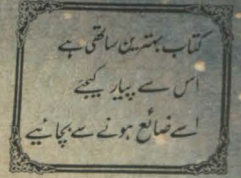 کتاب بہترین ساتھی ہے
اس سے پیار کیجئے
اسے ضائع ہونے سے بچائیے